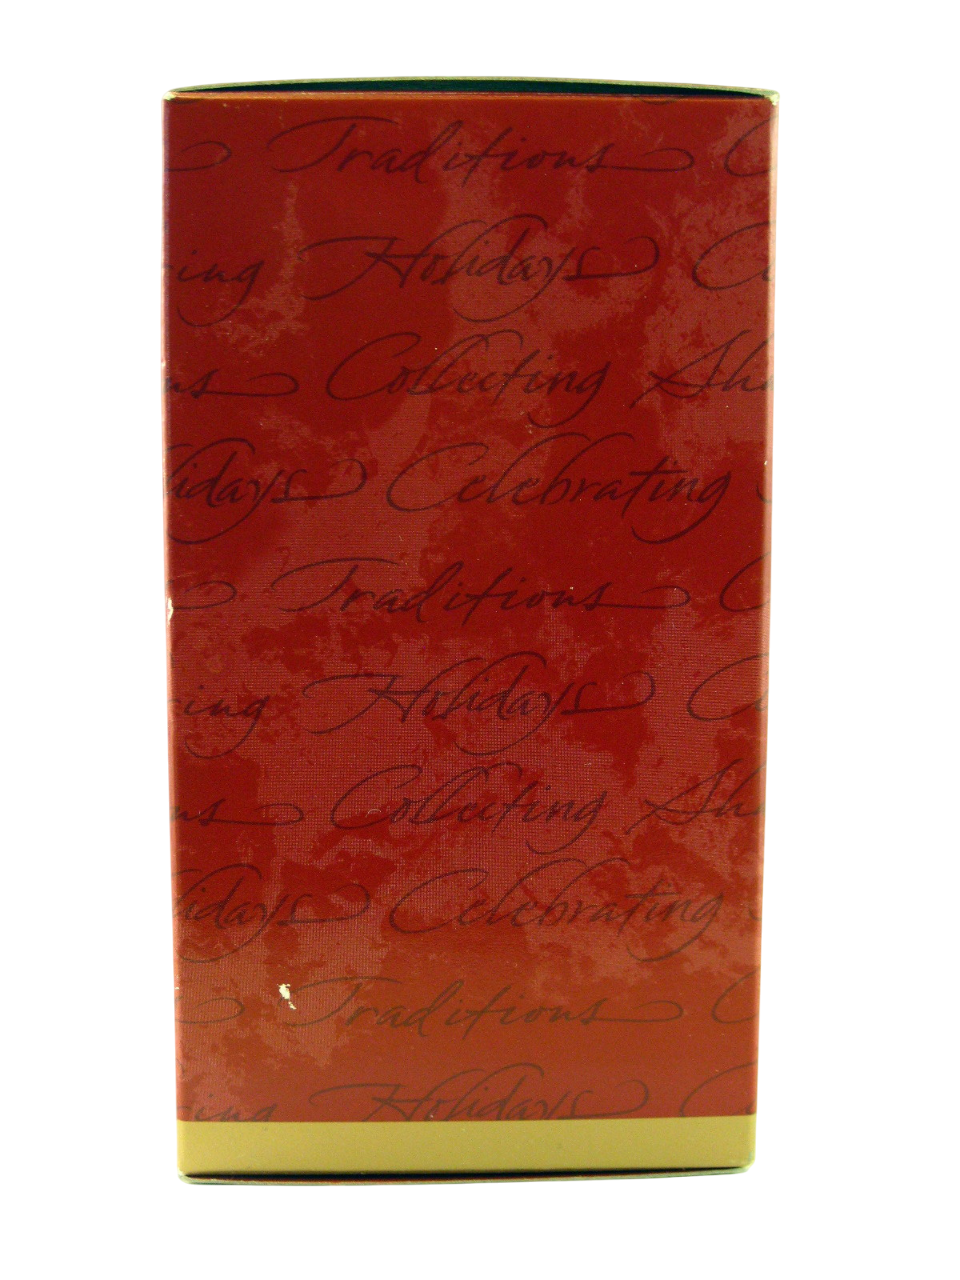 Traditions C
ring Holidays C
ns Collecting Sha
lidays Celebrating
Traditions C
ring Holidays C
ns Collecting Sh
lidays Celebrating
Traditions C
ring Holidays C